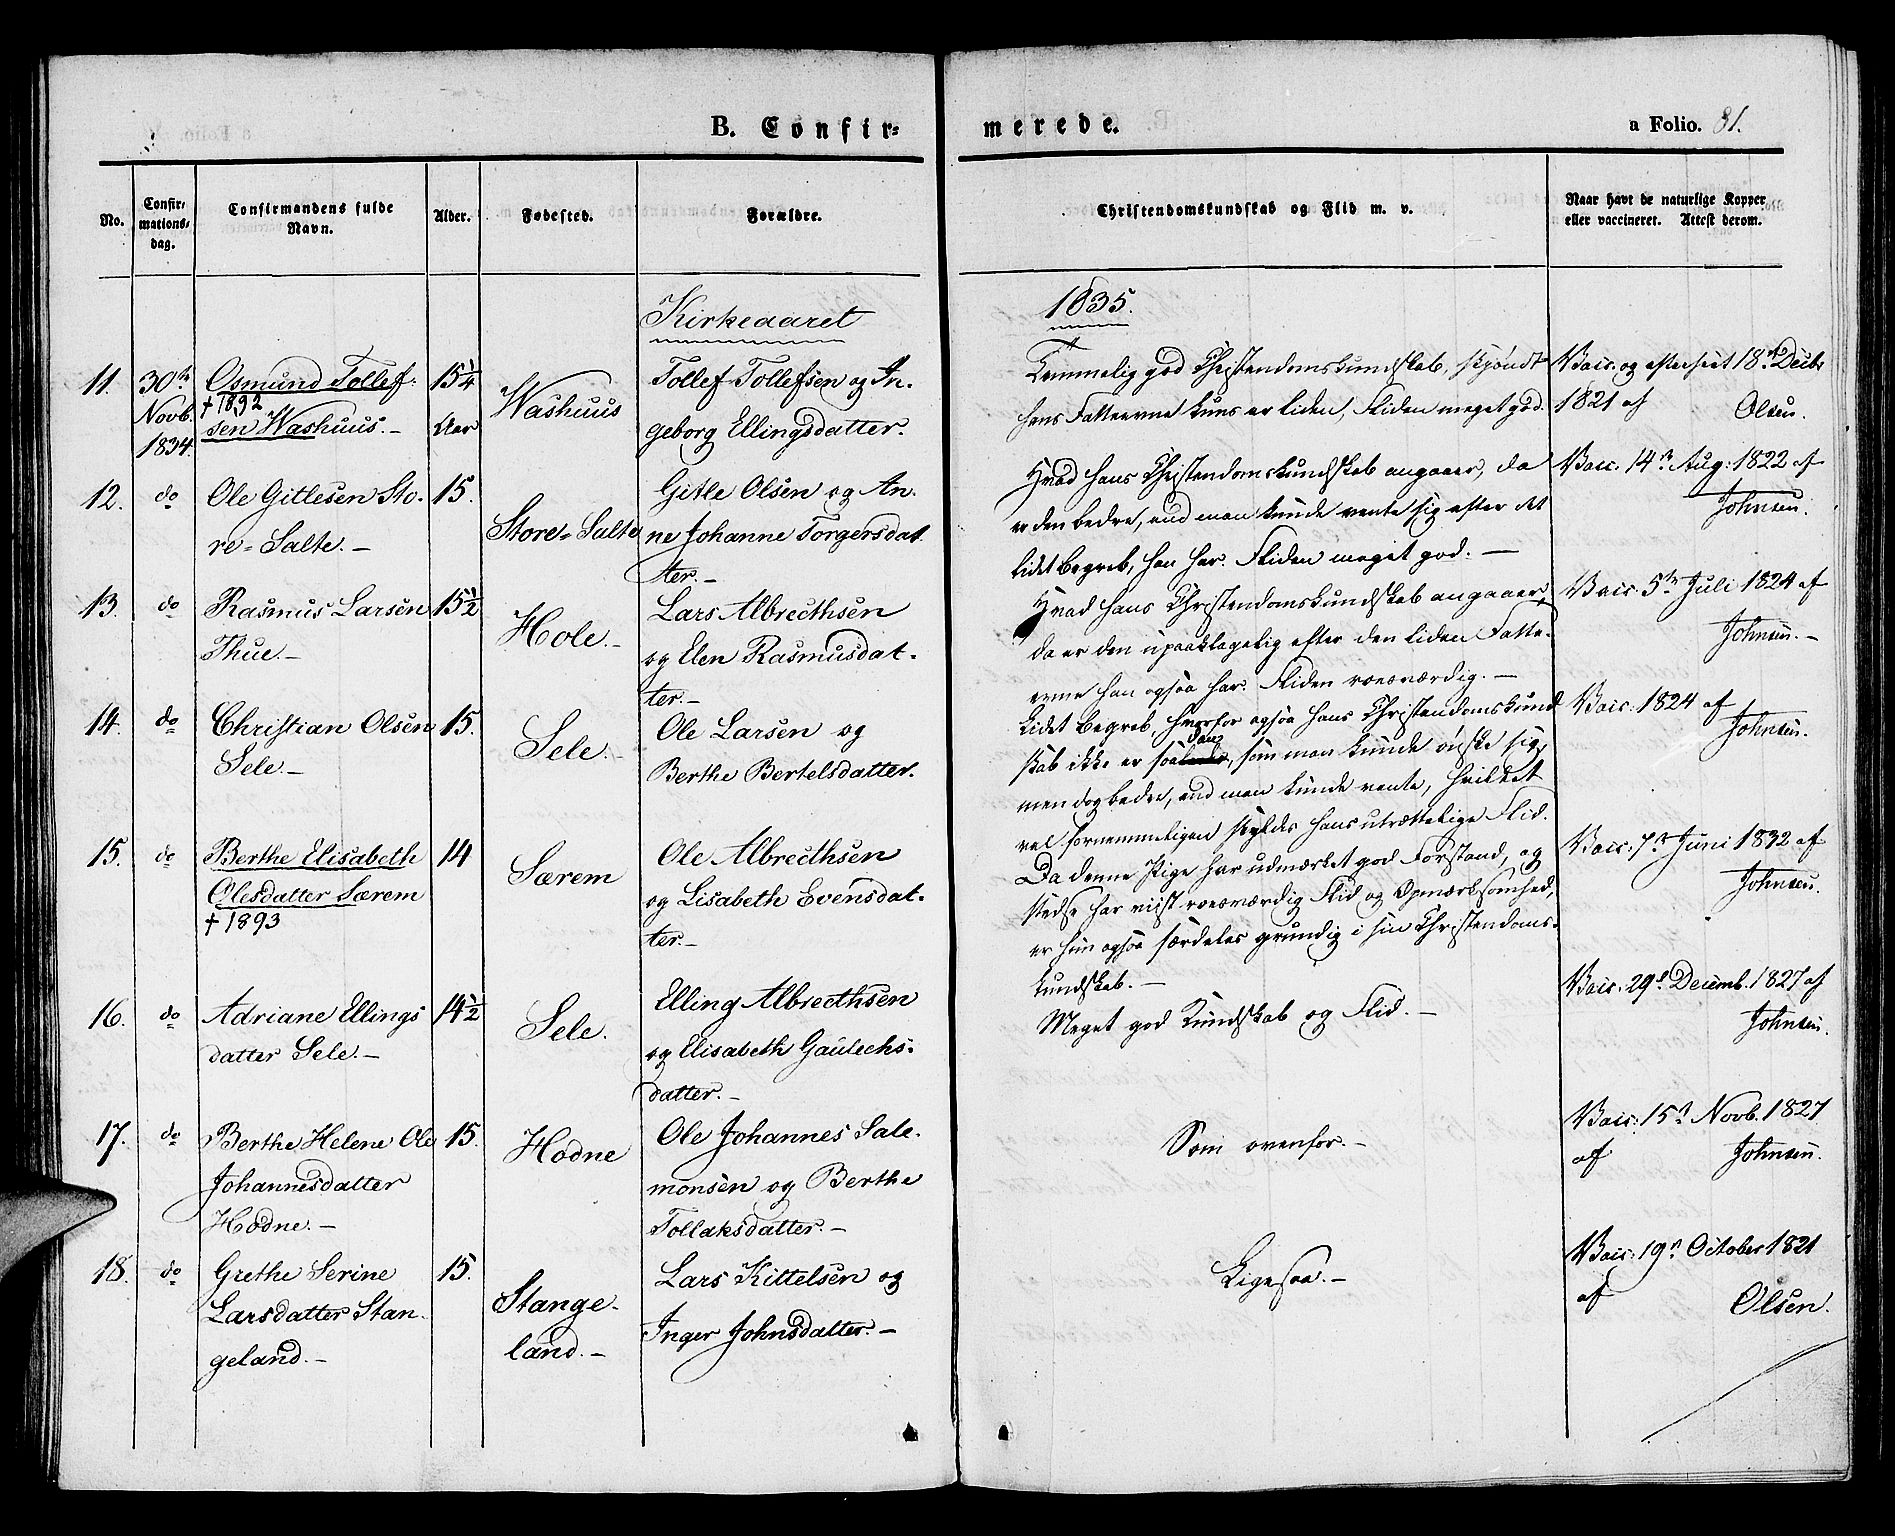 B. Confir=
merede.
a Folio. 81.
No.
Confir-
mations-
dag.
Confirmandens fulde
Navn.
Alder.
Fødested.
Forældre.
Christendomskundskab og Flid m. v.
Naar havt de naturlige Kopper
eller vaccineret. Attest derom.
Kirkeaaret
1835.
11.
30te
Novb.
1834.
Osmund Tollef-
† 1892
sen Washuus.-
15 1/4
Aar
Washuus
Tollef Tollefsen og In-
geborg Ellingsdatter.
Temmelig god Christendomskundskab, skjøndt
hans Fatteevne kuns er liden, Fliden meget god.
Vacc. og efterseet 18de Decbr
1821 af
Olsen.
12.
do
Ole Gitlesen Sto-
re=Salte.-
15.
Store=Salte
Gitle Olsen og An-
ne Johanne Torgersdat
ter.-
Hvad hans Christendomskundskab angaaer, da
er den bedre, end man kunde vente sig efter det
lidet Begreb, han har. Fliden meget god.-
Vacc. 14n Aug: 1822 af
Johnsen.
13.
do
Rasmus Larsen
Thue.-
15 1/2
Hole.-
Lars Albrecthsen
og Elen Rasmusdat-
ter.-
Hvad hans Christendomskundskab angaaer,
da er den upaaklagelig efter den liden Fatte-
evne han ogsaa har. Fliden roesværdig.-
Vacc. 5te Juli 1824 af
Johnsen.-
14.
do
Christian Olsen
Sele.-
15.
Sele.-
Ole Larsen og
Berthe Bertelsdatter.
Lidet Begreb, hvorfor ogsaa hans Christendomskund
skab ikke er saadan, som man kunde ønske sig,
men dog bedre, end man kunde vente, hvilket
vel fornemmeligen skyldes hans utrættelige Flid.
Vacc. 1824 af
Johnsen.
15.
do
Berthe Elisabeth
Olesdatter Særem
† 1893
14
Særem
Ole Albrecthsen
og Lisabeth Evensdat-
ter.-
Da denne Pige har udmærket god Forstand, og
stedse har viist roesværdig Flid og Opmærksomhed,
er hun ogsaa særdeles grundig i sin Christendoms-
kundskab.-
Vacc. 7n Juni 1832 af
Johnsen.
16.
do
Adriane Ellings
datter Sele.-
14 1/2
Sele.
Elling Albrecthsen
og Elisabeth Gautechs-
datter.-
Meget god Kundskab og Flid.-
Vacc. 29d Decemb. 1827 af
Johnsen.
17.
do
Berthe Helene Ole
Johannesdatter
Hodne.-
15.
Hodne
Ole Johannes Sale-
monsen og Berthe
Tollaksdatter.-
Som ovenfor.-
Vacc: 15n Novb. 1827
af
Johnsen.
18.
do
Grethe Serine
Larsdatter Stan-
geland.-
15.
Stange-
land.-
Lars Kittelsen og
Inger Johnsdatter.-
Ligesaa.-
Vacc: 19n October 1821
af
Olsen.